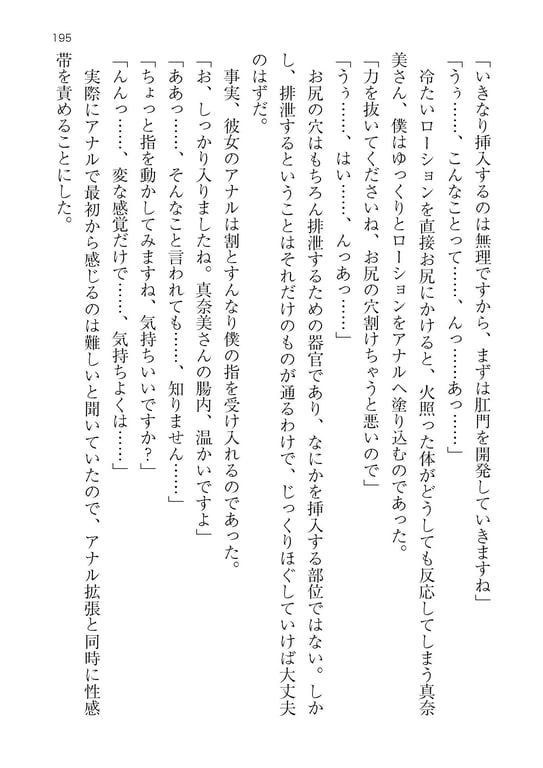 195
「いきなり挿入するのは無理ですから、まずは肛門を開発していきますね」
「うぅ……、こんなことって……、んっ……あっ……」
　冷たいローションを直接お尻にかけると、火照った体がどうしても反応してしまう真奈
美さん、僕はゆっくりとローションをアナルへ塗り込むのであった。
「力を抜いてくださいね、お尻の穴割けちゃうと悪いので」
「うぅ……、はい……、んっあっ……」
　お尻の穴はもちろん排泄するための器官であり、なにかを挿入する部位ではない。しか
し、排泄するということはそれだけのものが通るわけで、じっくりほぐしていけば大丈夫
のはずだ。
　事実、彼女のアナルは割とすんなり僕の指を受け入れるのであった。
「お、しっかり入りましたね。真奈美さんの腸内、温かいですよ」
「ああっ……、そんなこと言われても……、知りません……」
「ちょっと指を動かしてみますね、気持ちいいですか？」
「んんっ……、変な感覚だけで……、気持ちよくは……」
　実際にアナルで最初から感じるのは難しいと聞いていたので、アナル拡張と同時に性感
帯を責めることにした。